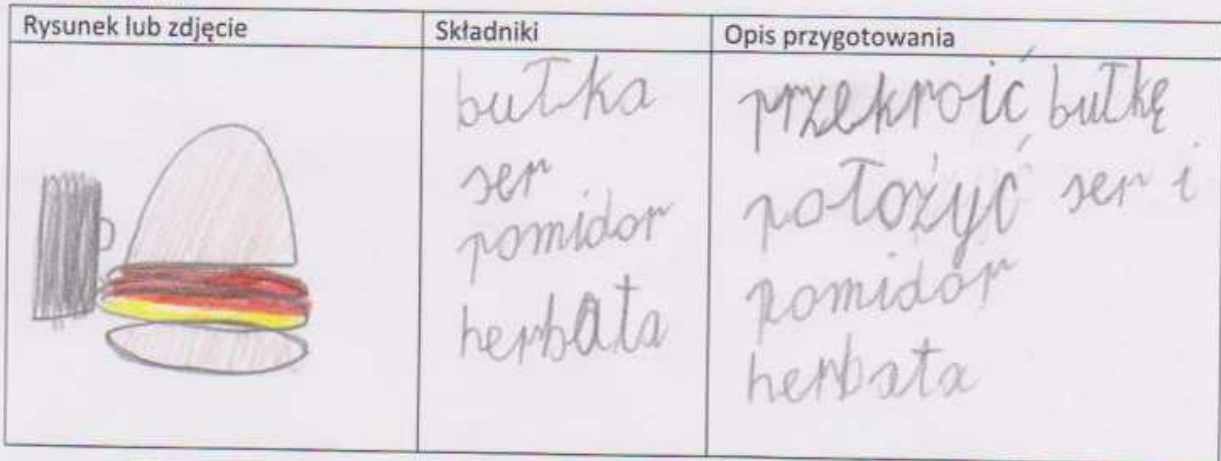 Rysunek lub zdjęcie
Składniki
Opis przygotowania
bułka
ser
pomidor
herbata
przekroić bułkę
położyć ser i
pomidor
herbata